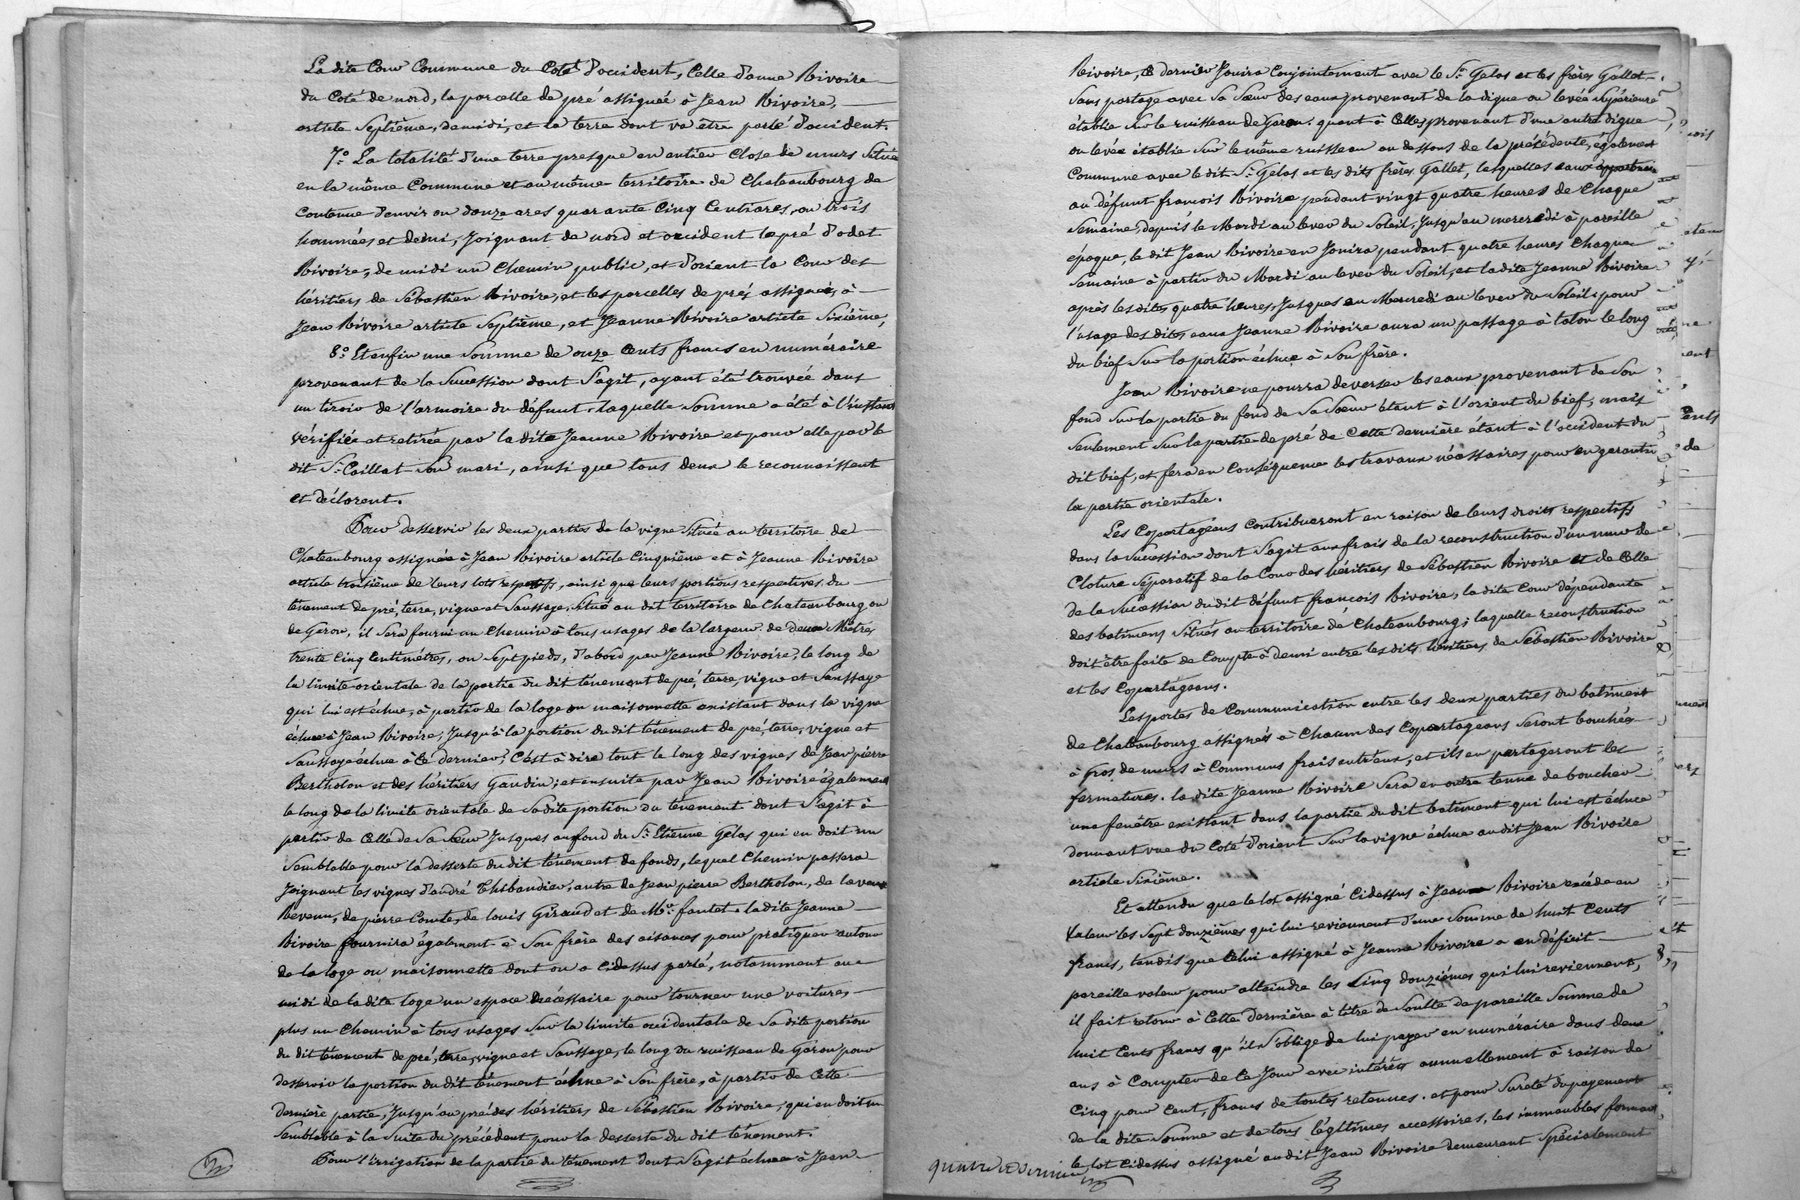 La dite Cour Commune du Coté d'occident, Celle d'anne Rivoire
du Coté de nord, la parcelle de pré assignée à Jean Rivoire,
article Septième, de midi, et la terre dont va être parlé d'occident.
7.° La totalité d'une terre presque en entier Close de murs Située
en la même Commune et au même territoire de Chateaubourg de
Contenue d'environ douze ares quarante Cinq Centiares, ou trois
hommées et demi, Joignant de nord et occident le pré d'odet
Rivoire, de midi un Chemin public, et d'orient la Cour des
héritiers de Sébastien Rivoire, et les parcelles de prés assignées à
Jean Rivoire article Septième, et Jeanne Rivoire article Sixième,
8.° Et enfin une Somme de onze Cents francs en numéraire
provenant de la Succession dont S'agit, ayant été trouvée dans
un tiroir de l'armoire du défunt, laquelle Somme a été à l'instant
vérifiée et retirée par la dite Jeanne Rivoire et pour elle par le
dit S.r Caillat Son mari, ainsi que tous deux le reconnaissent
et déclarent.
Pour desservir les deux parties de la vigne Située au territoire de
Chateaubourg assignée à Jean Rivoire article Cinquième et à Jeanne Rivoire
article troisième de leurs lots respectifs, ainsi que leurs portions respectives du
tènement de pré, terre, vigne et Saussaye, Situé au dit territoire de Chateaubourg ou
de Garon, il Sera fourni un Chemin à tous usages de la largeur de deux Mètres
trente Cinq Centimètres, ou Sept pieds, d'abord par Jeanne Rivoire, le long de
la limite orientale de la partie du dit tènement de pré, terre, vigne et Saussaye
qui lui est échue, à partir de la loge ou maisonnette existant dans la vigne
échue à Jean Rivoire, Jusqu'à la portion du dit tènement de pré, terre, vigne et
Saussaye échue à Ce dernier, C'est à dire tout le long des vignes de Jean pierre
Bertholon et des héritiers Gaudin; et ensuite par Jean Rivoire également
le long de la limite orientale de Sa dite portion du tènement dont S'agit à
partir de Celle de Sa Sœur Jusques au fond du S.r Etienne Gelas qui en doit un
Semblable pour la desserte du dit tènement de fonds, lequel Chemin passera
Joignant les vignes d'andré Thibaudier, autre de Jean pierre Bertholon, de la veuve
Revenu, de pierre Comte, de louis Giraud et de M.r fautet. la dite Jeanne
Rivoire fournira également à Son frère des aisances pour pratiquer autour
de la loge ou maisonnette dont on a Cidessus parlé, notamment au
midi de la dite loge un espace nécessaire pour tourner une voiture,
plus un Chemin à tous usages Sur la limite occidentale de Sa dite portion
du dit tènement de pré, terre, vigne et Saussaye, le long du ruisseau de Garon pour
desservir la portion du dit tènement échue à Son frère, à partir de Cette
dernière partie, Jusqu'au pré des héritiers de Sébastien Rivoire, qui en doit un
Semblable à la Suite du précédent pour la desserte du dit tènement.
Pour l'irrigation de la partie du tènement dont S'agit échue à Jean
Rivoire, Ce dernier Jouira Conjointement avec le S.r Gelas et les frères Gallet
Sans partage avec Sa Sœur des eaux provenant de la digue ou levée Supérieure
établie Sur le ruisseau de Garon. quant à Celles provenant d'une autre digue
ou levée établie Sur le même ruisseau au dessous de la précédente, également
Commune avec le dit S.r Gelas et les dits frères Gallet, lesquelles eaux
au défunt françois Rivoire pendant vingt quatre heures de Chaque
Semaine, depuis le Mardi au lever du Soleil, Jusqu'au mercredi à pareille
époque, le dit Jean Rivoire en Jouira pendant quatre heures Chaque
Semaine à partir du Mardi au lever du Soleil, et la dite Jeanne Rivoire
après les dites quatre heures, Jusques au Mercredi au lever du Soleil; pour
l'usage des dites eaux Jeanne Rivoire aura un passage à talon le long
du bief Sur la portion échue à Son frère.
Jean Rivoire ne pourra déverser les eaux provenant de Son
fond Sur la partie du fond de Sa Sœur étant à l'orient du bief, mais
Seulement Sur la partie de pré de Cette dernière étant à l'occident du
dit bief, et fera en Conséquence les travaux nécessaires pour en garantir
la partie orientale.
Les Copartageans Contribueront en raison de leurs droits respectifs
dans la Succession dont S'agit aux frais de la reconstruction d'un mur de
Cloture Séparatif de la Cour des héritiers de Sébastien Rivoire et de Celle
de la Succession du dit défunt françois Rivoire, la dite Cour dépendante
des batimens Situés au territoire de Chateaubourg; laquelle reconstruction
doit être faite de Compte à demi entre les dits héritiers de Sébastien Rivoire
et les Copartageans.
Les portes de Communication entre les deux parties du batiment
de Chateaubourg assignées à Chacun des Copartageans Seront bouchées
à gros de murs à Communs frais entr'eux, et ils en partageront les
fermetures. la dite Jeanne Rivoire Sera en outre tenue de boucher
une fenêtre existant dans la partie du dit batiment qui lui est échue
donnant vue du Coté d'orient Sur la vigne échue au dit Jean Rivoire
article Sixième.
Et attendu que le lot assigné Cidessus à Jean Rivoire excède en
Valeur les Sept douzièmes qui lui reviennent d'une Somme de huit Cents
francs, tandis que Celui assigné à Jeanne Rivoire a en déficit
pareille valeur pour atteindre les Cinq douzièmes qui lui reviennent,
il fait retour à Cette dernière à titre de Soulte de pareille Somme de
huit Cents francs qu'il S'oblige de lui payer en numéraire dans deux
ans à Compter de Ce Jour avec intérêts annuellement à raison de
Cinq pour Cent, francs de toutes retenues. et pour Sureté du payement
de la dite Somme et de tous légitimes accessoires, les immeubles formant
le lot Cidessus assigné au dit Jean Rivoire demeurent Spécialement